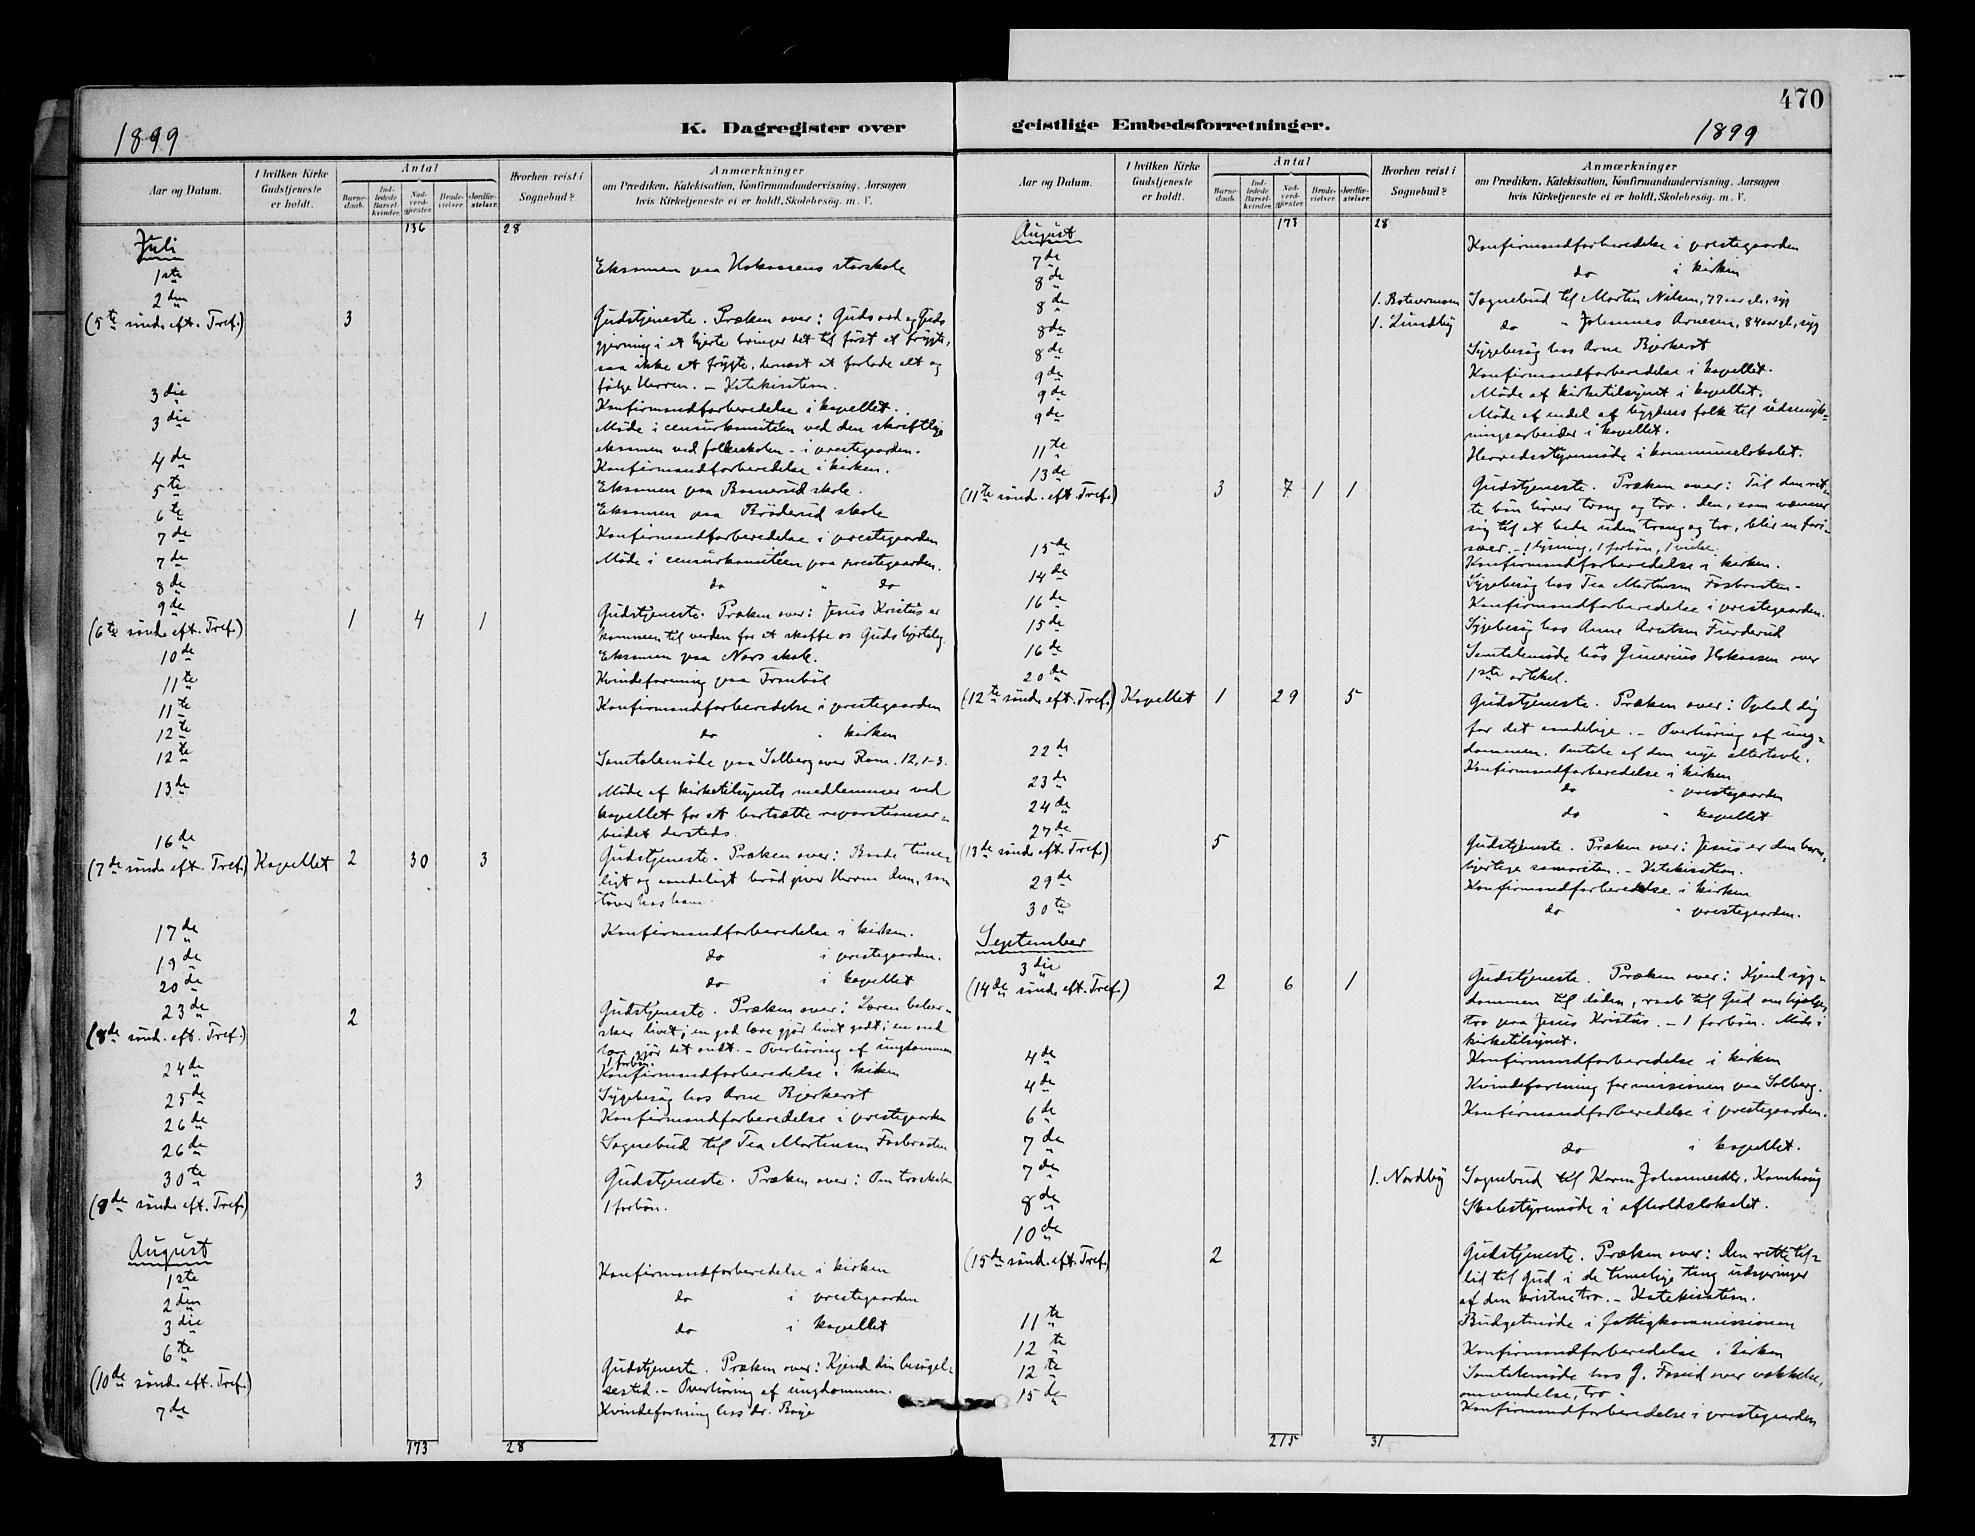 470
1899
K. Dagregister over geistlige Embedsforretninger.
1899
Aar og Datum.
I hvilken Kirke Gudstjeneste er holdt.
Antal
Barne-daab.
Ind-ledede Barsel-kvinder.
Nad-verd-gjester.
Brude-vielser.
Jordfæ-stelser.
Hvorhen reist i Sognebud?
Anmærkninger
om Prædiken, Katekisation, Konfirmandundervisning. Aarsagen
hvis Kirketjeneste ei er holdt. Skolebesøg. m. V.
136 28
Juli
1ste Eksamen paa Hokaasens storskole
2den
(5te sønd. eft. Tref.) 3 Gudstjeneste. Præken over: Guds ord og Guds
gjerning i et hjerte bringer det til først at frygte,
saa ikke at frygte, dernæst at forlade alt og
følge Herren. – Katekisation.
3die Konfirmandforberedelse i kapellet.
3die Møde i censurkomitéen ved den skriftlige
eksamen ved folkeskolen – i prestegaarden.
4de Konfirmandforberedelse i kirken.
5te Eksamen paa skole.
6te Eksamen paa Brøderud skole
7de Konfirmandforberedelse i prestegaarden
7de Møde i censurkomitéen paa prestegaarden.
8de do " do
9de
(6te sønd. eft. Tref.) 1 4 1 Gudstjeneste. Præken over: Jesus Kristus er
kommen til verden for at skaffe os Guds
10de Eksamen paa Nors skole.
11te Kvindeforening paa Tranbøl
11te Konfirmandforberedelse i prestegaarden
12te do " kirken
12te Samtalemøde paa Solberg over Rom. 12, 1-3.
13de Møde af kirketilsynets medlemmer ved
kapellet for at bortsætte reparationsar-
beidet dersteds.
16de
(7de sønd. eft. Tref.) Kapellet 2 30 3 Gudstjeneste. Præken over: Baade time-
ligt og aandeligt brød giver Herren dem, som
tøver hos ham.
17de Konfirmandforberedelse i kirken.
19de do i prestegaarden.
20de do i kapellet
23de
(8de sønd. eft. Tref.) 2 Gudstjeneste. Præken over: Læren beher-
sker livet; en god lære gjør livet godt; en ond
lære gjør det ondt. – Overhøring af ungdommen
1 forbøn.
24de Konfirmandforberedelse i kirken
25de Sygebesøg hos Arne Bjerkerot
26de Konfirmandforberedelse i prestegaarden
26de Sognebud til Tea Martinsen Fosbraaten
30te 3 Gudstjeneste. Præken over: Om troskaben
(9de sønd. eft. Tref.) 1 forbøn.
August
1ste Konfirmandforberedelse i kirken
2den do i prestegaarden
3die do i kapellet
6te
(10de sønd. eft. Tref.) Gudstjeneste. Præken over: Kjend din besøgel-
sestid. – Overhøring af ungdommen.
7de Kvindeforening hos dr. Boye
173 28
Aar og Datum.
I hvilken Kirke Gudstjeneste er holdt.
Antal
Barne-daab.
Ind-ledede Barsel-kvinder.
Nad-verd-gjester.
Brude-vielser.
Jordfæ-stelser.
Hvorhen reist i Sognebud?
Anmærkninger
om Prædiken, Katekisation, Konfirmandundervisning. Aarsagen
hvis Kirketjeneste ei er holdt. Skolebesøg. m. V.
173 28
August
7de Konfirmandforberedelse i prestegaarden
8de do i kirken
8de 1. Sognebud til Martin Nilsen, 77 aar gl., syg
8de 1. Lundby do " Johannes Arnesen, 84 aar gl., syg
8de Sygebesøg hos Arne Bjerkerot
9de Konfirmandforberedelse i kapellet.
9de Møde af kirketilsynet i kapellet.
9de Møde af endel af bygdens folk til udsmyk-
ningsarbeider i kapellet.
11te Herredsstyremøde i kommunelokalet.
13de
(11te sønd. eft. Tref.) 3 7 1 1 Gudstjeneste. Præken over: Til den ret-
te bøn hører trang og tro. Den, som vænner
sig til at bede uden trang og tro, blir en fari-
sæer. – 1 lysning, 1 forbøn, 1 vielse.
15de Konfirmandforberedelse i kirken.
14de Sygebesøg hos Tea Martinsen Fosbraaten –
16de Konfirmandforberedelse i prestegaarden.
15de Sygebesøg hos Anne Arntsen Furderud
16de Samtalemøde hos Gunerius Hokaasen over
1ste artikel.
20de
(12te sønd. eft. Tref.) Kapellet 1 29 5 Gudstjeneste. Præken over: Oplad dig
for det aandelige. – Overhøring af ung-
dommen. Omtale af den nye altertavle.
22de Konfirmandforberedelse i kirken
23de do " prestegaarden
24de do " kapellet
27de
(13de sønd. eft. Tref.) 5 Gudstjeneste. Præken over: Jesus er den barm-
hjertige samaritan. – Katekisation.
29de Konfirmandforberedelse i kirken
30te do " prestegaarden.
September
3die
(14de sønd. eft. Tref.) 2 6 1 Gudstjeneste. Præken over: Kjend syg-
dommen til døden, raab til Gud om hjælp,
tro paa Jesus Kristus. – 1 forbøn. Møde i
kirketilsynet.
4de Konfirmandforberedelse i kirken
4de Kvindeforening for missionen paa Solberg.
6de Konfirmandforberedelse i prestegaarden.
7de do i kapellet.
7de 1. Nordby Sognebud til Karen Johannesdtr. Kamhaug
8de Skolestyremøde i afholdslokalet.
10de
(15de sønd. eft. Tref.) 2 Gudstjeneste. Præken over: Den rette til-
lid til Gud i de timelige ting udspringer
af den kristne tro. – Katekisation.
11te Budgetmøde i fattigkommissionen
12te Konfirmandforberedelse i kirken
12te Samtalemøde hos G. Fosud over vækkelse,
omvendelse, tro –
15de Konfirmandforberedelse i prestegaarden
215 31